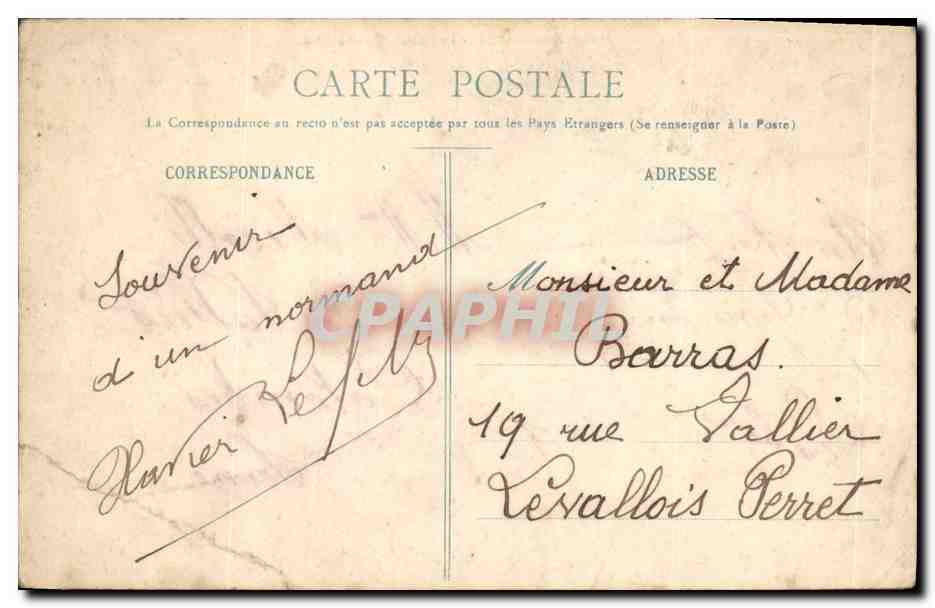 CARTE POSTALE
La Correspondance au recto n'est pas acceptée par tous les Pays Etrangers (Se renseigner à la Poste)
CORRESPONDANCE
Souvenir
d'un normand
Xavier
ADRESSE
Monsieur et Madame
Barras.
19 rue Vallier
Levallois Perret
CPAPHIL